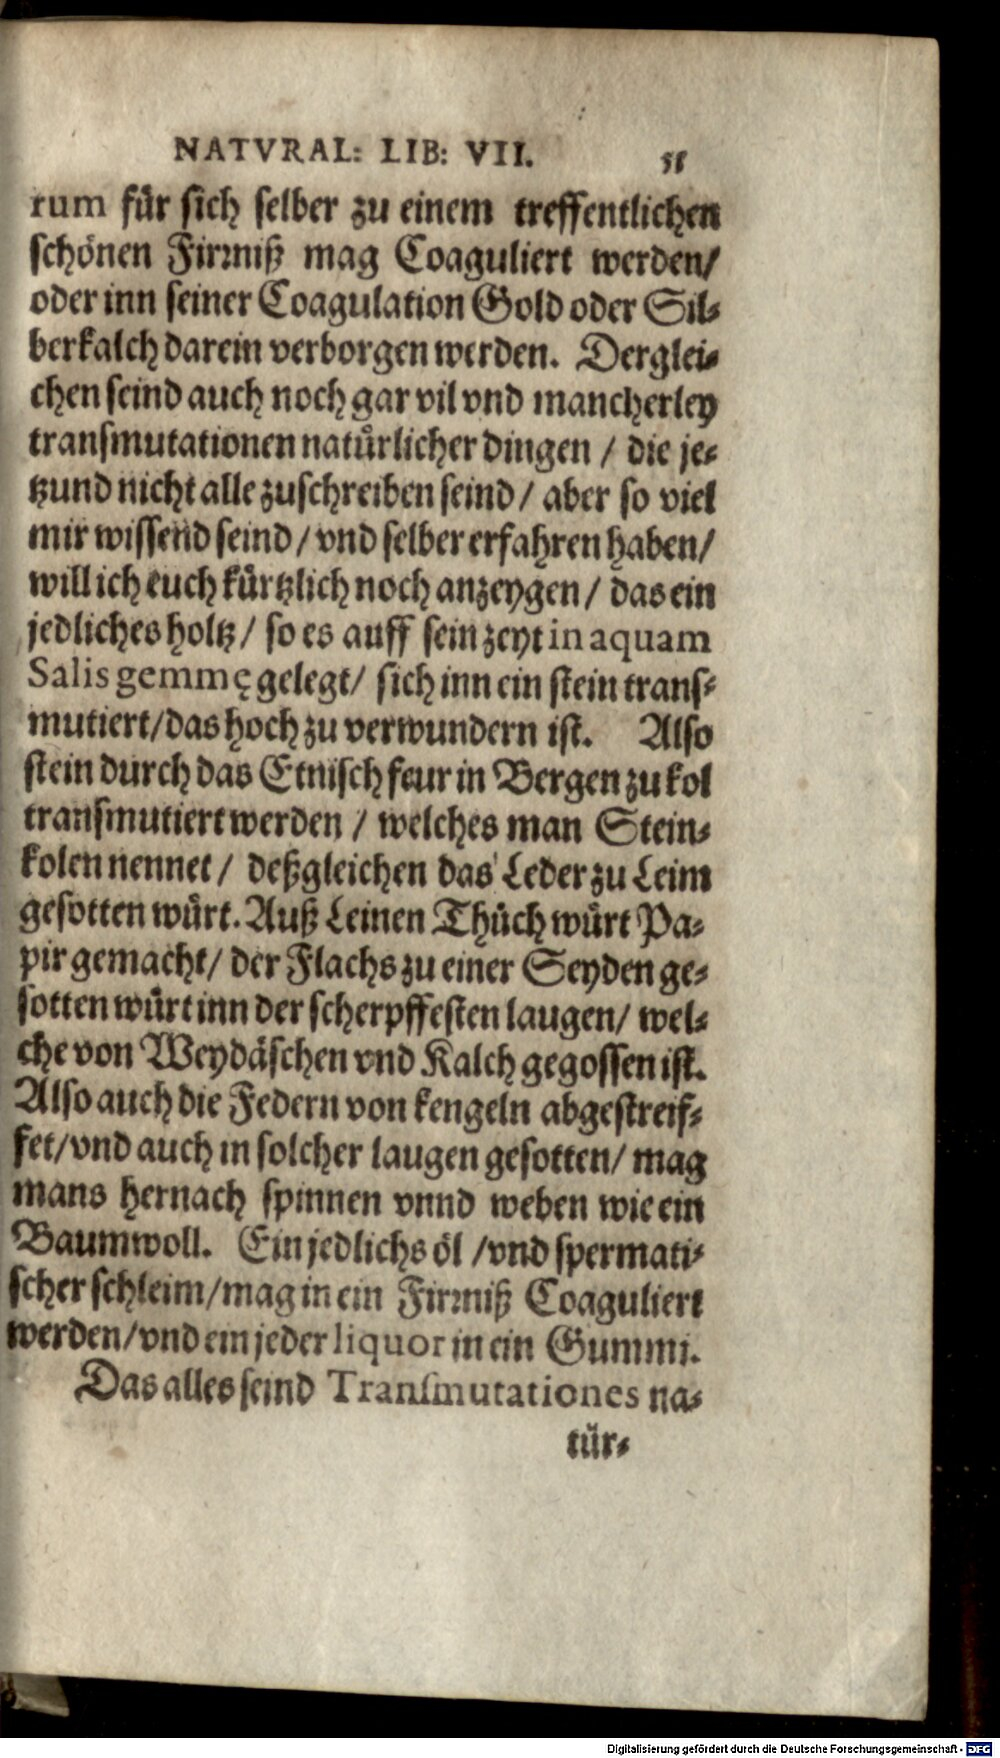 NATVRAL: LIB: VII. 51
rum für sich selber zu einem treffentlichen
schönen Firniß mag Coaguliert werden/
oder inn seiner Coagulation Gold oder Sil-
berkalch darein verborgen werden. Derglei-
chen seind auch noch gar vil vnd mancherley
transmutationen natürlicher dingen / die je-
tzund nicht alle zuschreiben seind / aber so viel
mir wissend seind / vnd selber erfahren haben/
will ich euch kürtzlich noch anzeygen / das ein
jedliches holtz / so es auff sein zeyt in aquam
Salis gemmę gelegt/ sich inn ein stein trans-
mutiert/das hoch zu verwundern ist. Also
stein durch das Etnisch feur in Bergen zu kol
transmutiert werden / welches man Stein-
kolen nennet / deßgleichen das Leder zu Leim
gesotten würt. Auß Leinen Thüch würt Pa-
pir gemacht/ der Flachs zu einer Seyden ge-
sotten würt inn der scherpffesten laugen/ wel-
che von Weydäschen vnd Kalch gegossen ist.
Also auch die Federn von kengeln abgestreif-
fet/vnd auch in solcher laugen gesotten/ mag
mans hernach spinnen vnnd weben wie ein
Baumwoll. Ein jedlichs öl /vnd spermati-
scher schleim/mag in ein Firniß Coaguliert
werden/vnd ein jeder liquor in ein Gummi.
Das alles seind Transmutationes na-
tür-
Digitalisierung gefördert durch die Deutsche Forschungsgemeinschaft - DFG